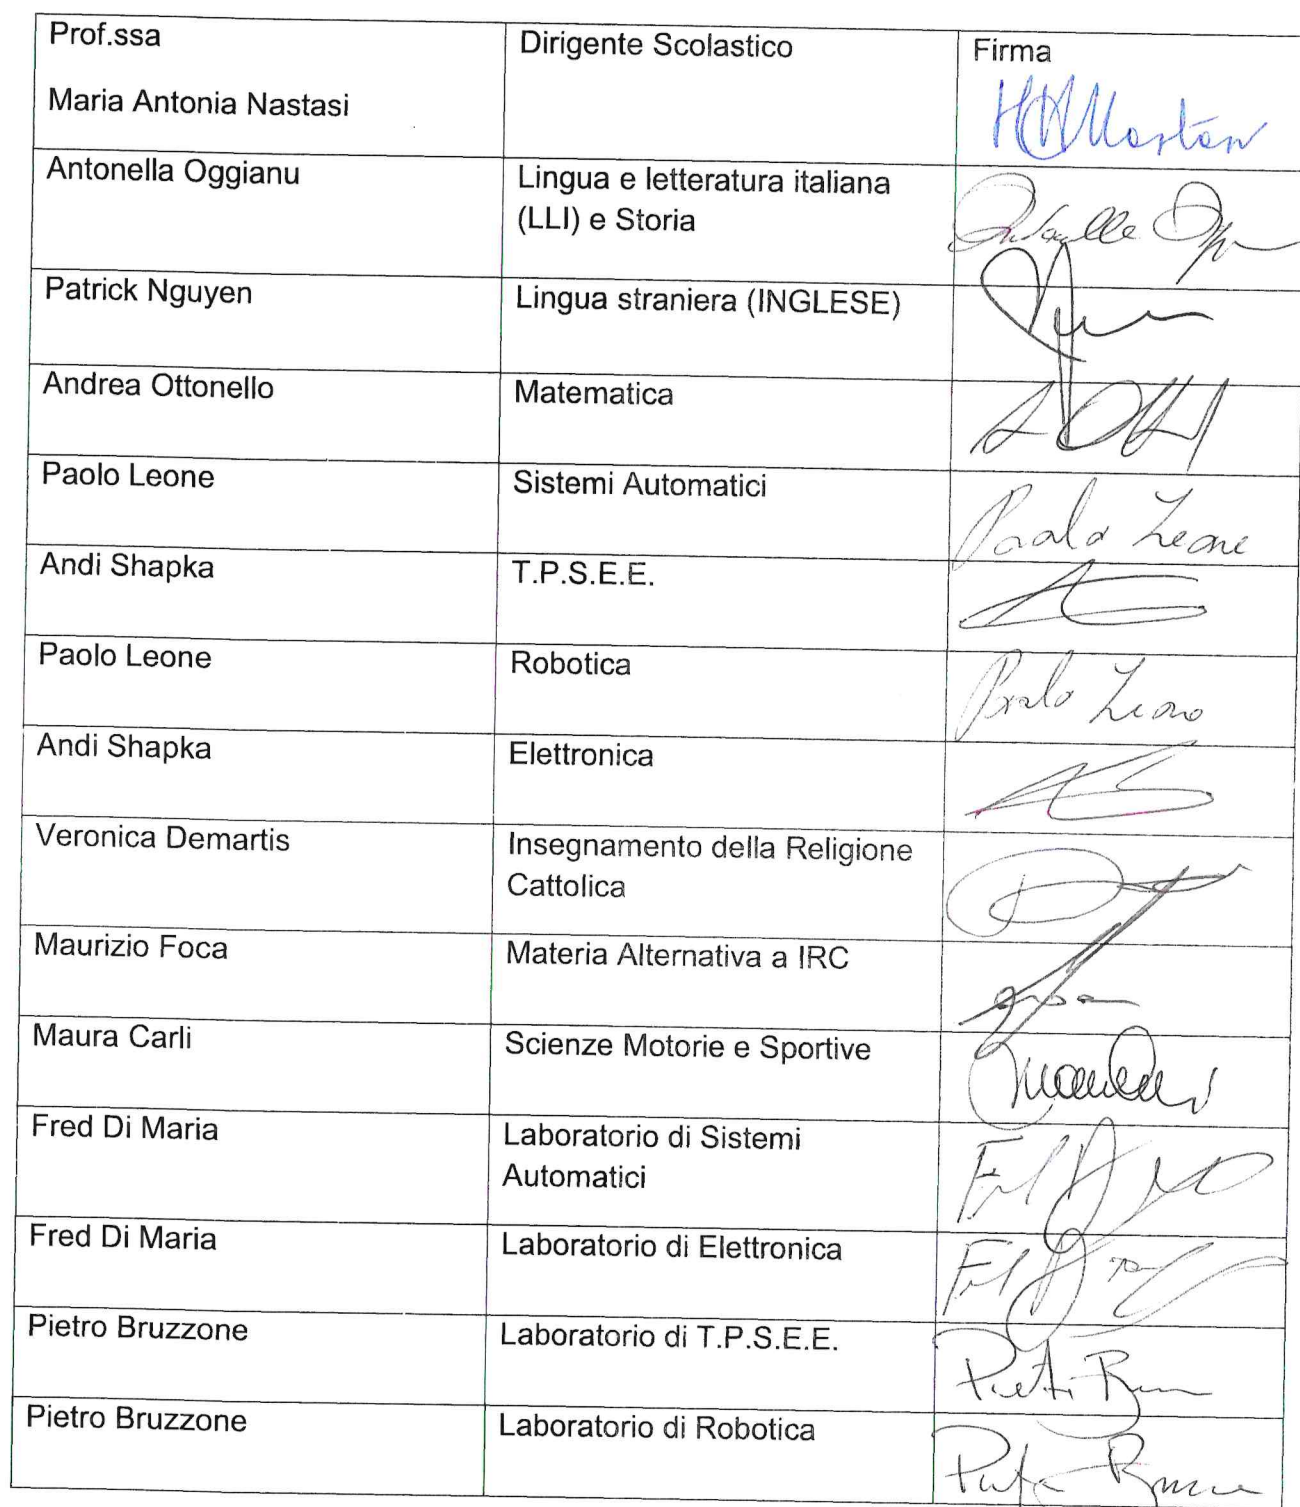 Prof.ssa
Maria Antonia Nastasi
Dirigente Scolastico
Firma
Antonella Oggianu
Lingua e letteratura italiana
(LLI) e Storia
Patrick Nguyen
Lingua straniera (INGLESE)
Andrea Ottonello
Matematica
Paolo Leone
Sistemi Automatici
Paolo Leone
Andi Shapka
T.P.S.E.E.
Paolo Leone
Robotica
Paolo Leone
Andi Shapka
Elettronica
Veronica Demartis
Insegnamento della Religione
Cattolica
Maurizio Foca
Materia Alternativa a IRC
Maura Carli
Scienze Motorie e Sportive
Fred Di Maria
Laboratorio di Sistemi
Automatici
Fred Di Maria
Laboratorio di Elettronica
Pietro Bruzzone
Laboratorio di T.P.S.E.E.
Pietro Bruzzone
Laboratorio di Robotica